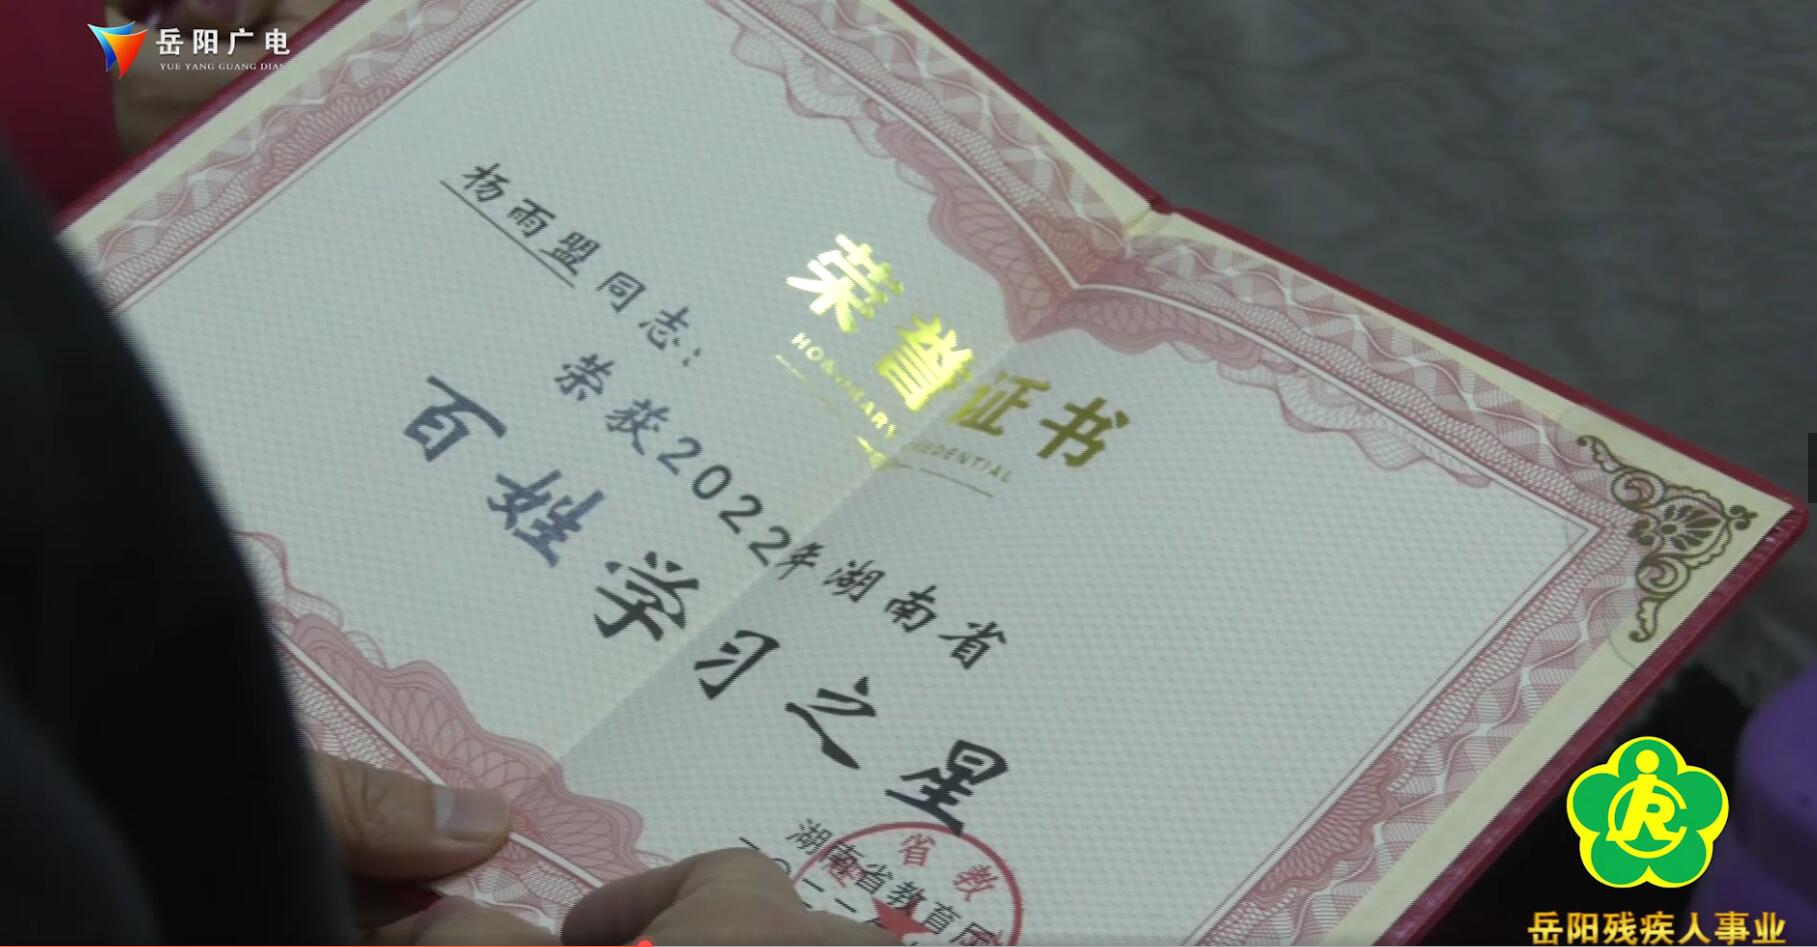 岳阳广电
YUE YANG GUANG DIAN
荣誉证书
杨雨盟同志:
荣获2022年湖南省
百姓学习之星
湖南省教育厅
省教
岳阳残疾人事业